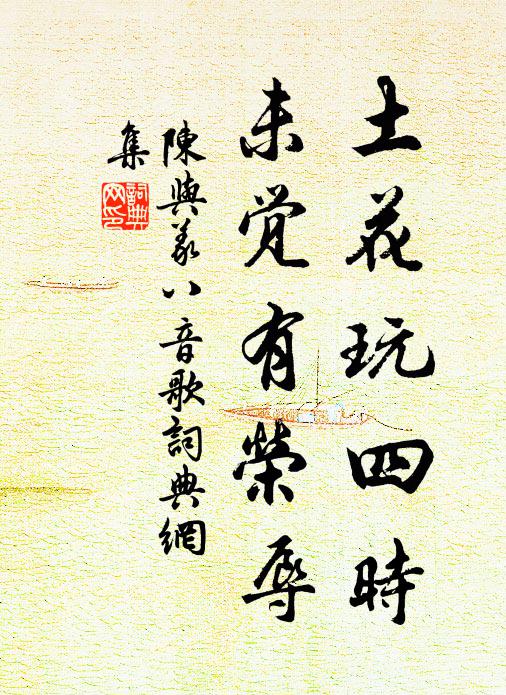 土花玩四時
未觉有榮辱
陳與義八音歌詞典網
集
詞典
网印